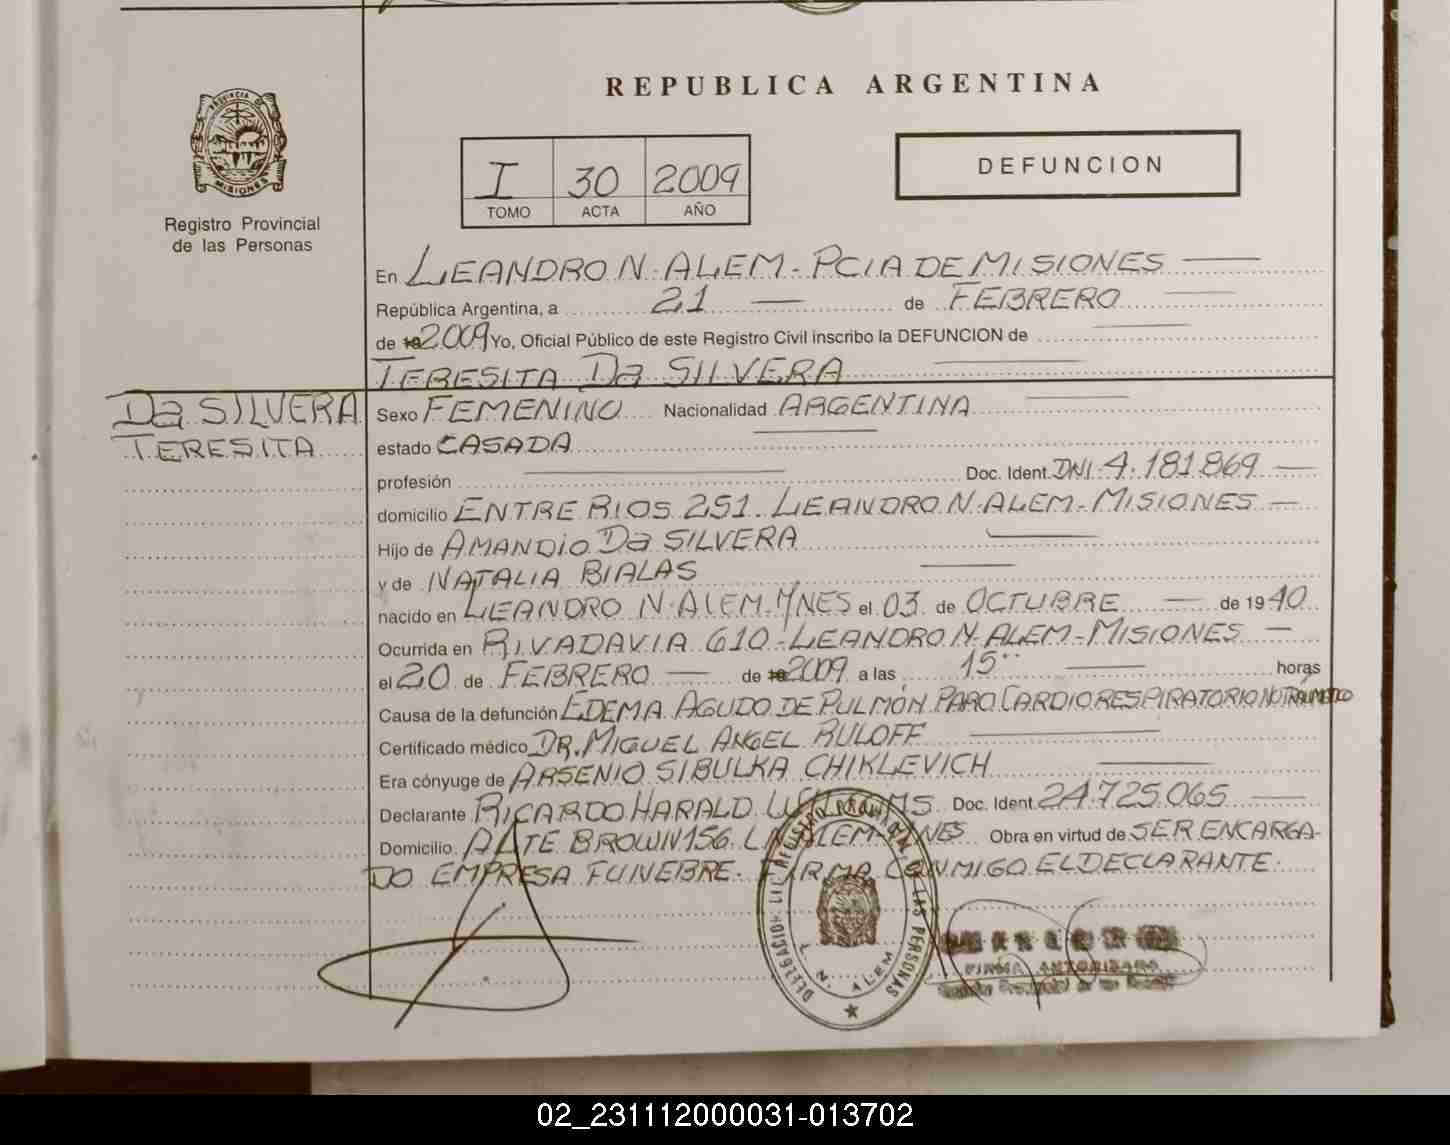 REPUBLICA ARGENTINA
PROVINCIA DE
MISIONES
Registro Provincial
de las Personas
I 30 2009
TOMO ACTA AÑO
DEFUNCION
En LEANDRO N. ALEM - PCIA DE MISIONES
República Argentina, a 21 de FEBRERO
de 19 2009 Yo, Oficial Público de este Registro Civil inscribo la DEFUNCION de
TERESITA Da SILVERA
Da SILVERA
TERESITA
Sexo FEMENINO Nacionalidad ARGENTINA
estado CASADA
profesión Doc. Ident. DNI 4.181.869
domicilio ENTRE RIOS 251. LEANDRO N. ALEM - MISIONES
Hijo de AMANDIO Da SILVERA
y de NATALIA BIALAS
nacido en LEANDRO N. ALEM - M/NES el 03 de OCTUBRE de 19 40
Ocurrida en RIVADAVIA 610 - LEANDRO N. ALEM - MISIONES
el 20 de FEBRERO de 19 2009 a las 15 horas
Causa de la defunción EDEMA AGUDO DE PULMÓN. PARO CARDIORESPIRATORIO NO TRAUMATICO
Certificado médico DR. MIGUEL ANGEL RULOFF
Era cónyuge de ARSENIO SIBULKA CHIKLEVICH
Declarante RICARDO HARALD Doc. Ident. 24.725.065
Domicilio. ALTE BROWN 156. L.N. ALEM - M/NES Obra en virtud de SER ENCARGA-
DO EMPRESA FUNEBRE. FIRMA CONMIGO EL DECLARANTE.
REGISTRO PROVINCIAL DE LAS PERSONAS
DELEGACION
L. N. ALEM
FIRMA AUTORIZADA
02_231112000031-013702